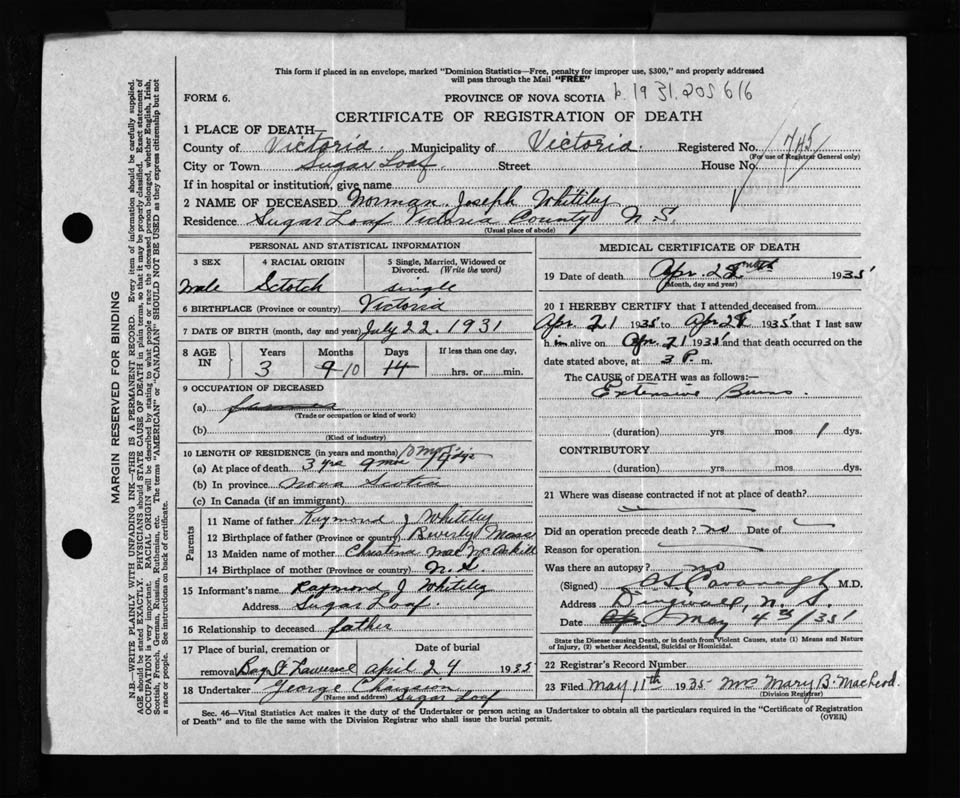 This form if placed in an envelope, marked "Dominion Statistics—Free, penalty for improper use, $300," and properly addressed
will pass through the Mail "FREE"
FORM 6.
PROVINCE OF NOVA SCOTIA
CERTIFICATE OF REGISTRATION OF DEATH
1 PLACE OF DEATH—
County of Victoria. Municipality of Victoria. Registered No. 745
(For use of Registrar General only)
City or Town Sugar Loaf. Street House No.
If in hospital or institution, give name
2 NAME OF DECEASED Norman Joseph Whitley
Residence Sugar Loaf Victoria County N.S.
(Usual place of abode)
PERSONAL AND STATISTICAL INFORMATION
3 SEX 4 RACIAL ORIGIN 5 Single, Married, Widowed or Divorced. (Write the word)
male Sctotch single
6 BIRTHPLACE (Province or country) Victoria
7 DATE OF BIRTH (month, day and year) July 22. 1931
8 AGE IN Years Months Days If less than one day,
3 9 10 14 hrs. or min.
9 OCCUPATION OF DECEASED
(a)
(Trade or occupation or kind of work)
(b)
(Kind of industry)
10 LENGTH OF RESIDENCE (in years and months)
(a) At place of death 3 yrs 9 mos
(b) In province Nova Scotia
(c) In Canada (if an immigrant)
Parents
11 Name of father Raymond J Whitley
12 Birthplace of father (Province or country) Beverly Mass
13 Maiden name of mother Christina Mae McAskill
14 Birthplace of mother (Province or country) N.S
15 Informant's name Raymond J Whitley
Address Sugar Loaf.
16 Relationship to deceased father
17 Place of burial, cremation or removal Date of burial
Bay St Lawrence april 24 1935
18 Undertaker George
(Name and address) Sugar Loaf
MEDICAL CERTIFICATE OF DEATH
19 Date of death Apr. 1935
(Month, day and year)
20 I HEREBY CERTIFY that I attended deceased from
Apr 21 1935 to Apr 1935 that I last saw
him alive on Apr 21 1935 and that death occurred on the
date stated above, at 3 P. m.
The CAUSE of DEATH was as follows:—
Extensive Burns.
(duration) yrs. mos. 1 dys.
CONTRIBUTORY
(duration) yrs. mos. dys.
21 Where was disease contracted if not at place of death?
Did an operation precede death? no Date of
Reason for operation
Was there an autopsy? no
(Signed) Cavanagh M.D.
Address Dingwall, N.S.
Date May 4th /35
State the Disease causing Death, or in death from Violent Causes, state (1) Means and Nature
of Injury, (2) whether Accidental, Suicidal or Homicidal.
22 Registrar's Record Number
23 Filed May 11th 1935 Mrs Mary B. MacLeod.
(Division Registrar)
Sec. 46—Vital Statistics Act makes it the duty of the Undertaker or person acting as Undertaker to obtain all the particulars required in the "Certificate of Registration
of Death" and to file the same with the Division Registrar who shall issue the burial permit.
(OVER)
MARGIN RESERVED FOR BINDING
N.B.—WRITE PLAINLY WITH UNFADING INK—THIS IS A PERMANENT RECORD. Every item of information should be carefully supplied.
AGE should be stated EXACTLY. PHYSICIANS should STATE CAUSE OF DEATH in plain terms, so that it may be properly classified. Exact statement of
OCCUPATION is very important. RACIAL ORIGIN will be described by stating to what people or race the deceased person belonged, whether English, Irish,
Scottish, French, German, Russian, Ruthenian, etc. The terms "AMERICAN" or "CANADIAN" SHOULD NOT BE USED as they express citizenship but not
a race or people. See instructions on back of certificate.